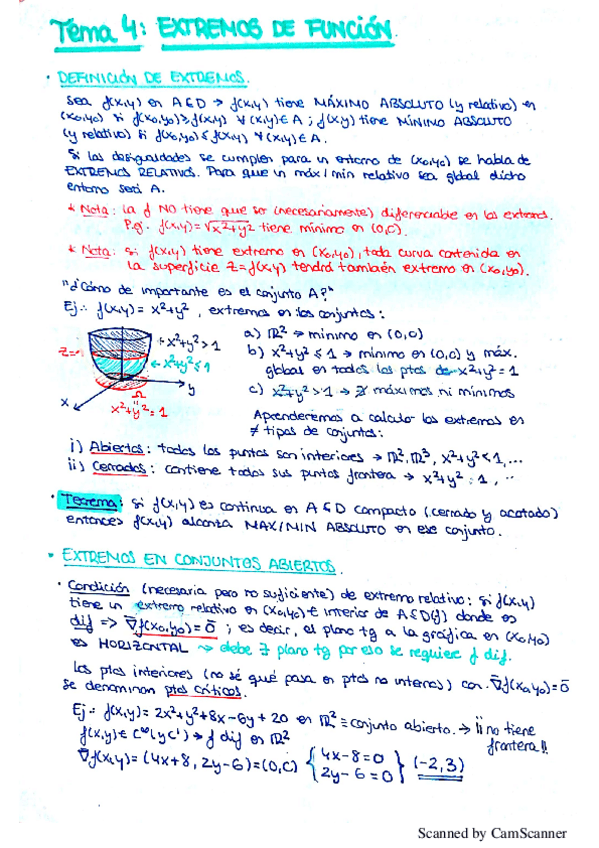 Tema 4: EXTREMOS DE FUNCIÓN.
· DEFINICIÓN DE EXTREMOS.
Sea f(x,y) en A⊆D → f(x,y) tiene MÁXIMO ABSOLUTO (y relativo) en
(x₀,y₀) si f(x₀,y₀)≥f(x,y) ∀(x,y)∈A ; f(x,y) tiene MÍNIMO ABSOLUTO
(y relativo) si f(x₀,y₀)≤f(x,y) ∀(x,y)∈A.
Si las desigualdades se cumplen para un entorno de (x₀,y₀) se habla de
EXTREMOS RELATIVOS. Para que un máx/min relativo sea global dicho
entorno será A.
* Nota: la f NO tiene que ser (necesariamente) diferenciable en los extremos.
P.ej. f(x,y)=√x²+y² tiene mínimo en (0,0).
* Nota: si f(x,y) tiene extremo en (x₀,y₀), toda curva contenida en
la superficie z=f(x,y) tendrá también extremo en (x₀,y₀).
"¿Cómo de importante es el conjunto A?"
Ej.: f(x,y)= x²+y², extremos en los conjuntos:
a) ℝ² → mínimo en (0,0)
b) x²+y² ≤ 1 → mínimo en (0,0) y máx.
global en todos los ptos de x²+y²=1
c) x²+y² > 1 → ∄ máximos ni mínimos
x²+y²>1
z=1
x²+y²≤1
y
x
Ω
x²+y²=1
Aprenderemos a calcular los extremos en
≠ tipos de conjuntos:
i) Abiertos: todos los puntos son interiores → ℝ², ℝ³, x²+y²<1, ...
ii) Cerrados: contiene todos sus puntos frontera → x²+y²=1, ..
· Teorema: si f(x,y) es continua en A⊆D compacto (cerrado y acotado)
entonces f(x,y) alcanza MAX/MIN ABSOLUTO en ese conjunto.
· EXTREMOS EN CONJUNTOS ABIERTOS.
· Condición (necesaria pero no suficiente) de extremo relativo: si f(x,y)
tiene un extremo relativo en (x₀,y₀)∈ interior de A⊆D(f) donde es
dif => ∇f(x₀,y₀)=0̄ ; es decir, el plano tg a la gráfica en (x₀,y₀)
es HORIZONTAL ⤳ debe ∃ plano tg por eso se requiere f dif.
Los ptos interiores (no sé qué pasa en ptos no internos) con ∇f(x₀,y₀)=0̄
se denominan ptos críticos.
Ej.: f(x,y)= 2x²+y²+8x-6y+20 en ℝ² ≡ conjunto abierto. → ¡¡no tiene
frontera!!
f(x,y)∈C^∞(y C¹) → f dif en ℝ²
∇f(x,y)=(4x+8, 2y-6)=(0,0) { 4x-8=0
2y-6=0 } (-2,3)
Scanned by CamScanner